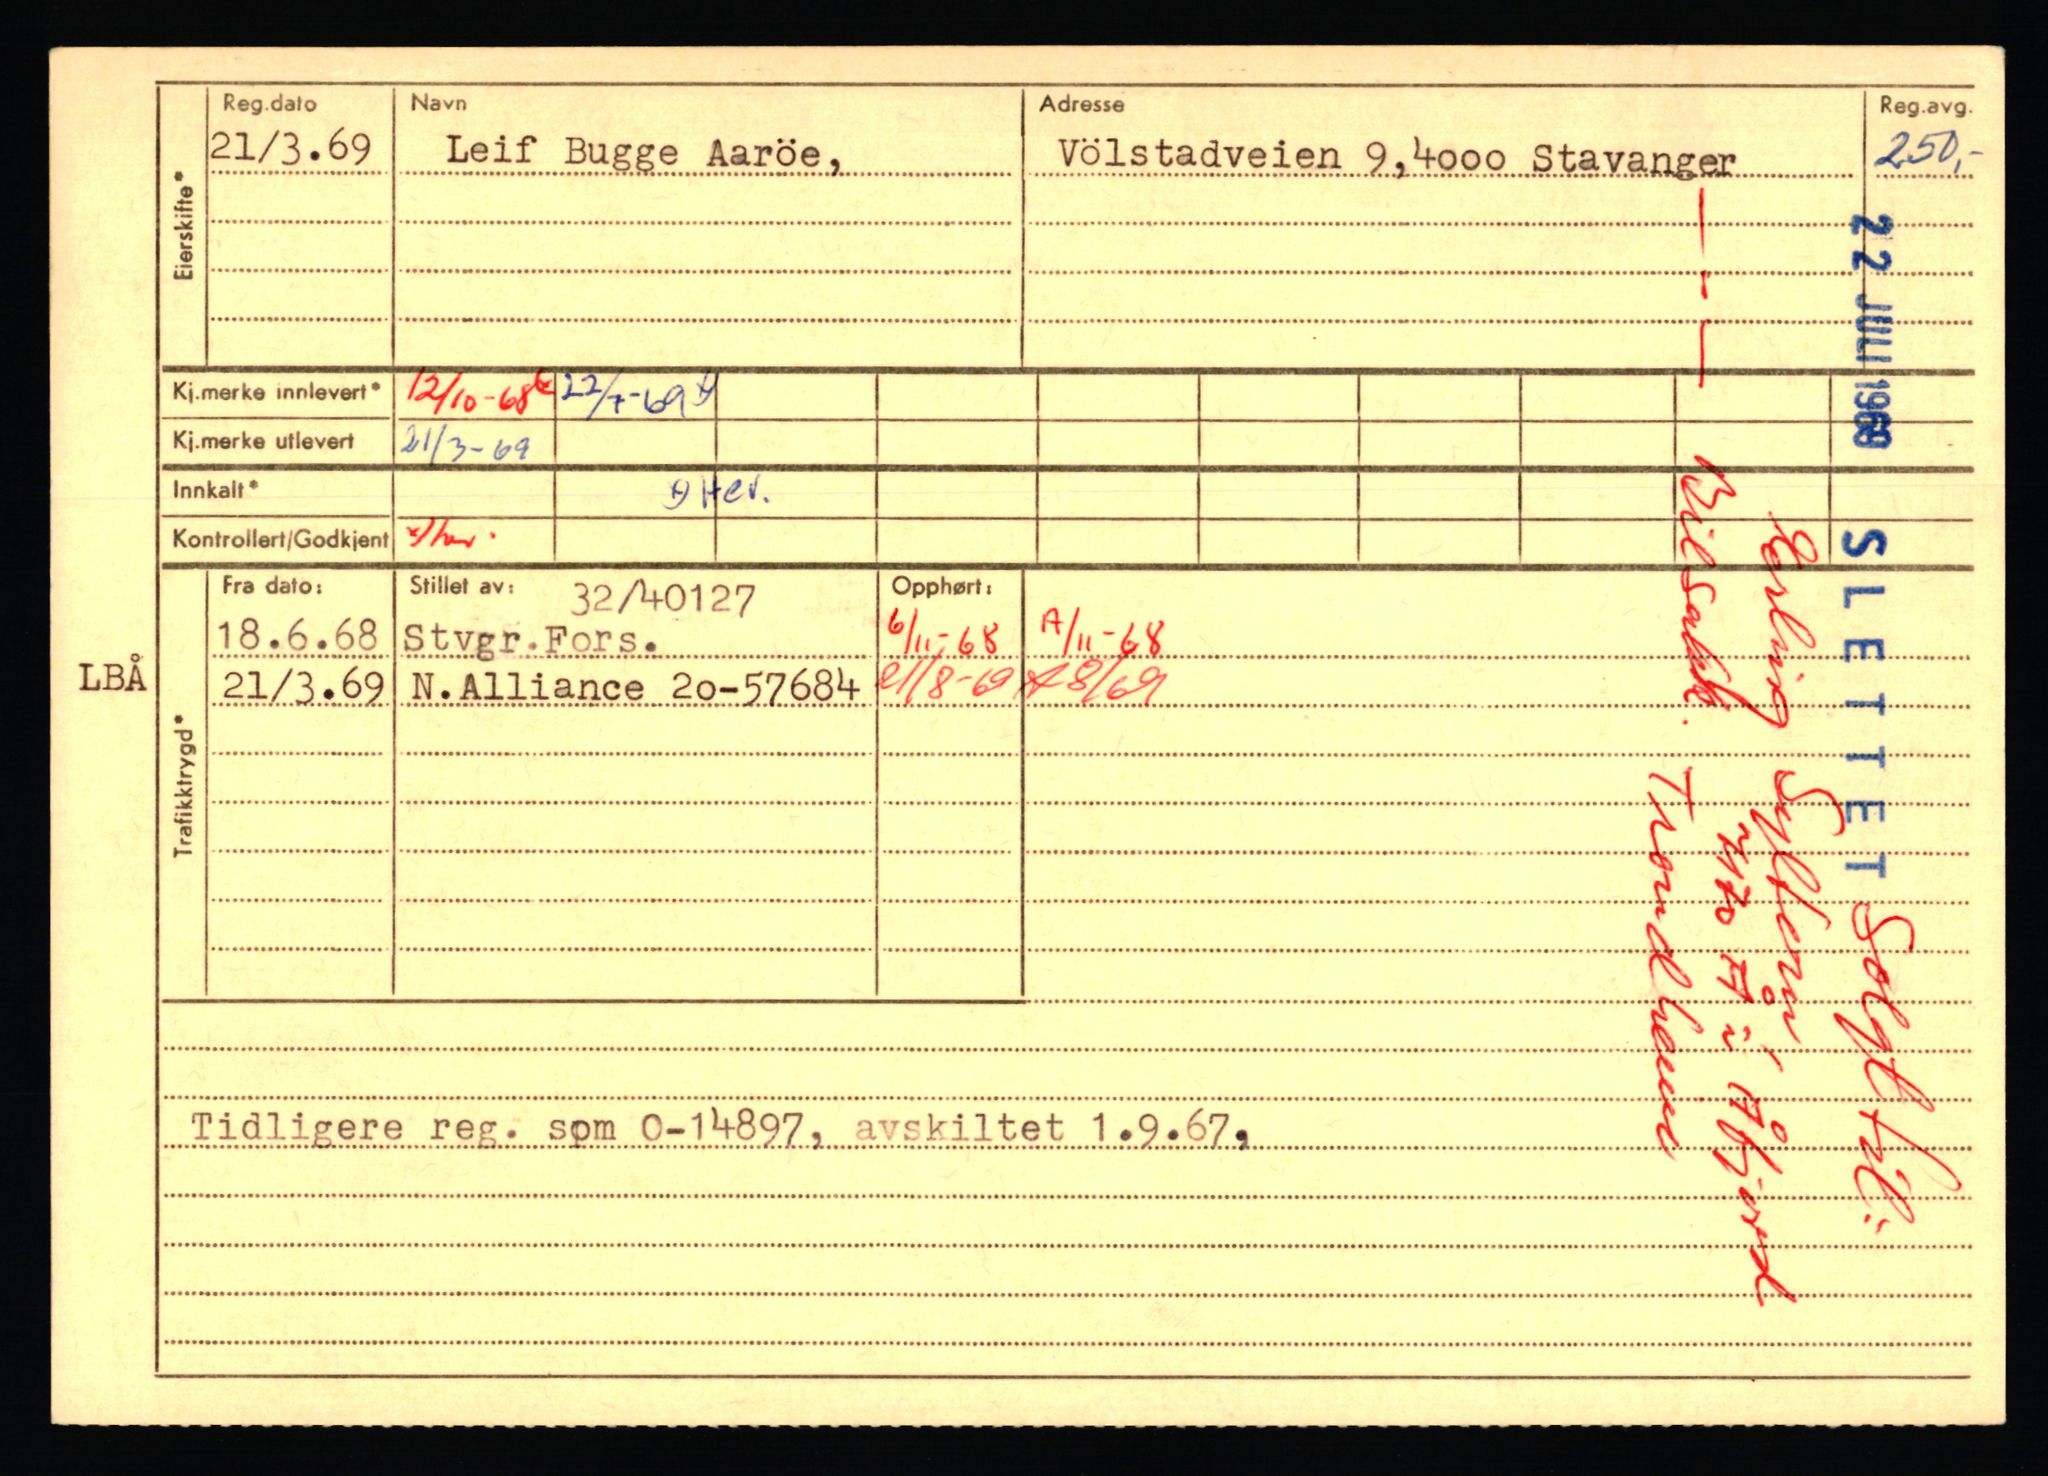 Reg.dato Navn Adresse Reg.avg.
21/3.69 Leif Bugge Aaröe, Völstadveien 9,4000 Stavanger 250,-
Eierskifte*
Kj.merke innlevert* 12/10-68 22/7-69
Kj.merke utlevert 21/3-69
Innkalt* Hev.
Kontrollert/Godkjent
Fra dato: Stillet av: 32/40127 Opphørt:
18.6.68 Stvgr.Fors. 6/11-68 A/11-68
LBÅ 21/3.69 N.Alliance 20-57684 21/8-69 A8/69
Trafikktrygd*
Tidligere reg. som O-14897, avskiltet 1.9.67,
22 JULI 1969 SLETTET
Solgt til:
Erling
7170 Å i Åfjord
Bilsakk. Trondheim